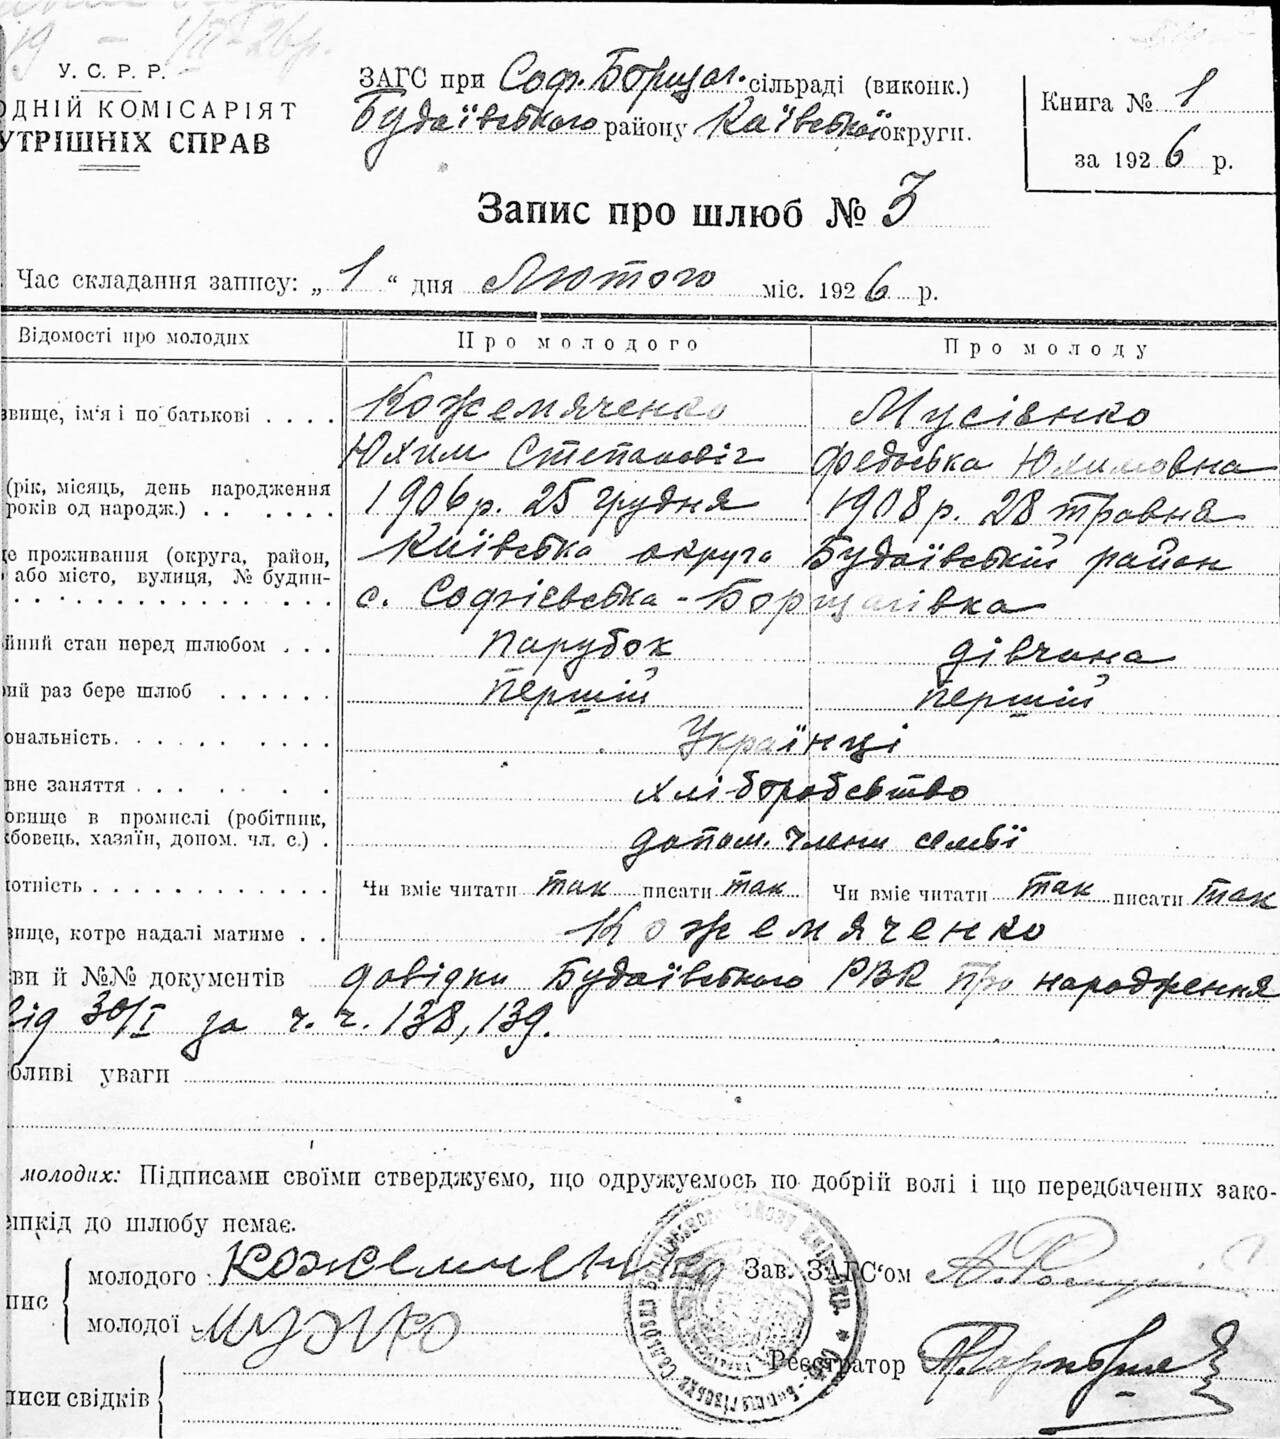 19 – 1/II-26р.
У. С. Р. Р.
ОДНІЙ КОМІСАРІЯТ
УТРІШНІХ СПРАВ
ЗАГС при Соф. Борщаг. сільраді (виконк.)
Будаївського району Київської округи.
Книга № 1
за 1926 р.
Запис про шлюб № 3
Час складання запису: „1“ дня Лютого міс. 1926 р.
Відомості про молодих
Про молодого
Про молоду
звище, ім'я і по батькові . . . .
Кожемяченко
Мусієнко
Юхим Степановіч
Федоська Юхимовна
(рік, місяць, день народження
років од народж.) . . . . . . .
1906 р. 25 грудня
1908 р. 28 травня
це проживання (округа, район,
або місто, вулиця, № будин-
Київська округа Будаївський район
с. Софієвська-Борщагівка
йний стан перед шлюбом . . .
парубок
дівчина
ий раз бере шлюб . . . . . .
першій
першій
ональність. . . . . . . . . .
Українці
вне заняття . . . . . . .
хліборобство
овище в промислі (робітник,
бовець, хазяїн, допом. чл. с.) .
допом. члени семьї
отність . . . . . . . . . . . . .
Чи вміє читати так писати так
Чи вміє читати так писати так
вище, котре надалі матиме . .
Кожемяченко
ви й №№ документів довідки Будаївського РВК про народження
від 30/I за ч. ч. 138, 139.
бливі уваги
молодих: Підписами своїми стверджуємо, що одружуємось по добрій волі і що передбачених зако-
шкід до шлюбу немає.
пис
молодого Кожемяченко
Зав. ЗАГС'ом
молодої
Реєстратор
писи свідків